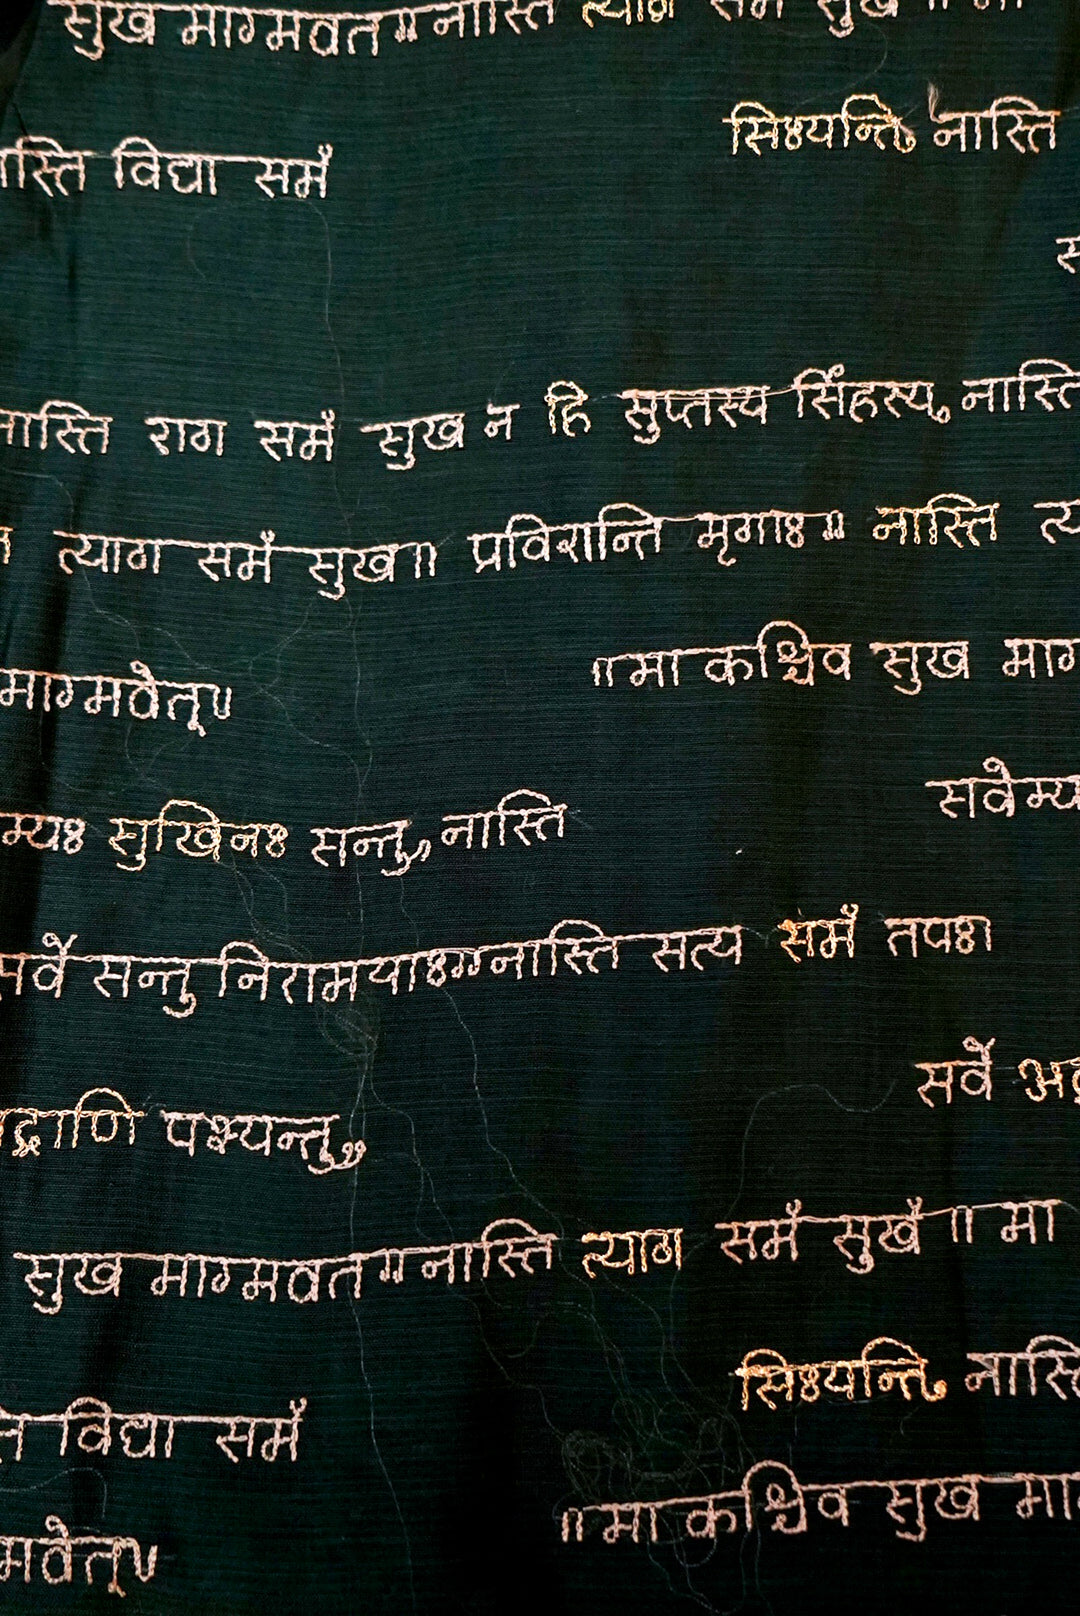 सुख माग्मवत॥नास्ति त्याग समं सुख॥ मा
सिध्यन्ति, नास्ति
नास्ति विद्या समं
नास्ति राग समं सुख न हि सुप्तस्य सिंहस्य, नास्ति
त्याग समं सुख॥ प्रविशन्ति मृगाः॥ नास्ति त्य
॥मा कश्चिव सुख माग
माग्मवेत्॥
सवेम्य
म्यः सुखिनः सन्तु,, नास्ति
सर्वे सन्तु निरामयाः॥नास्ति सत्य समं तपः।
सर्वे भद्र
द्राणि पश्यन्तु,,
सुख माग्मवत॥नास्ति त्याग समं सुखं ॥ मा
सिध्यन्ति, नास्ति
विद्या समं
॥मा कश्चिव सुख माग
मवेत्॥